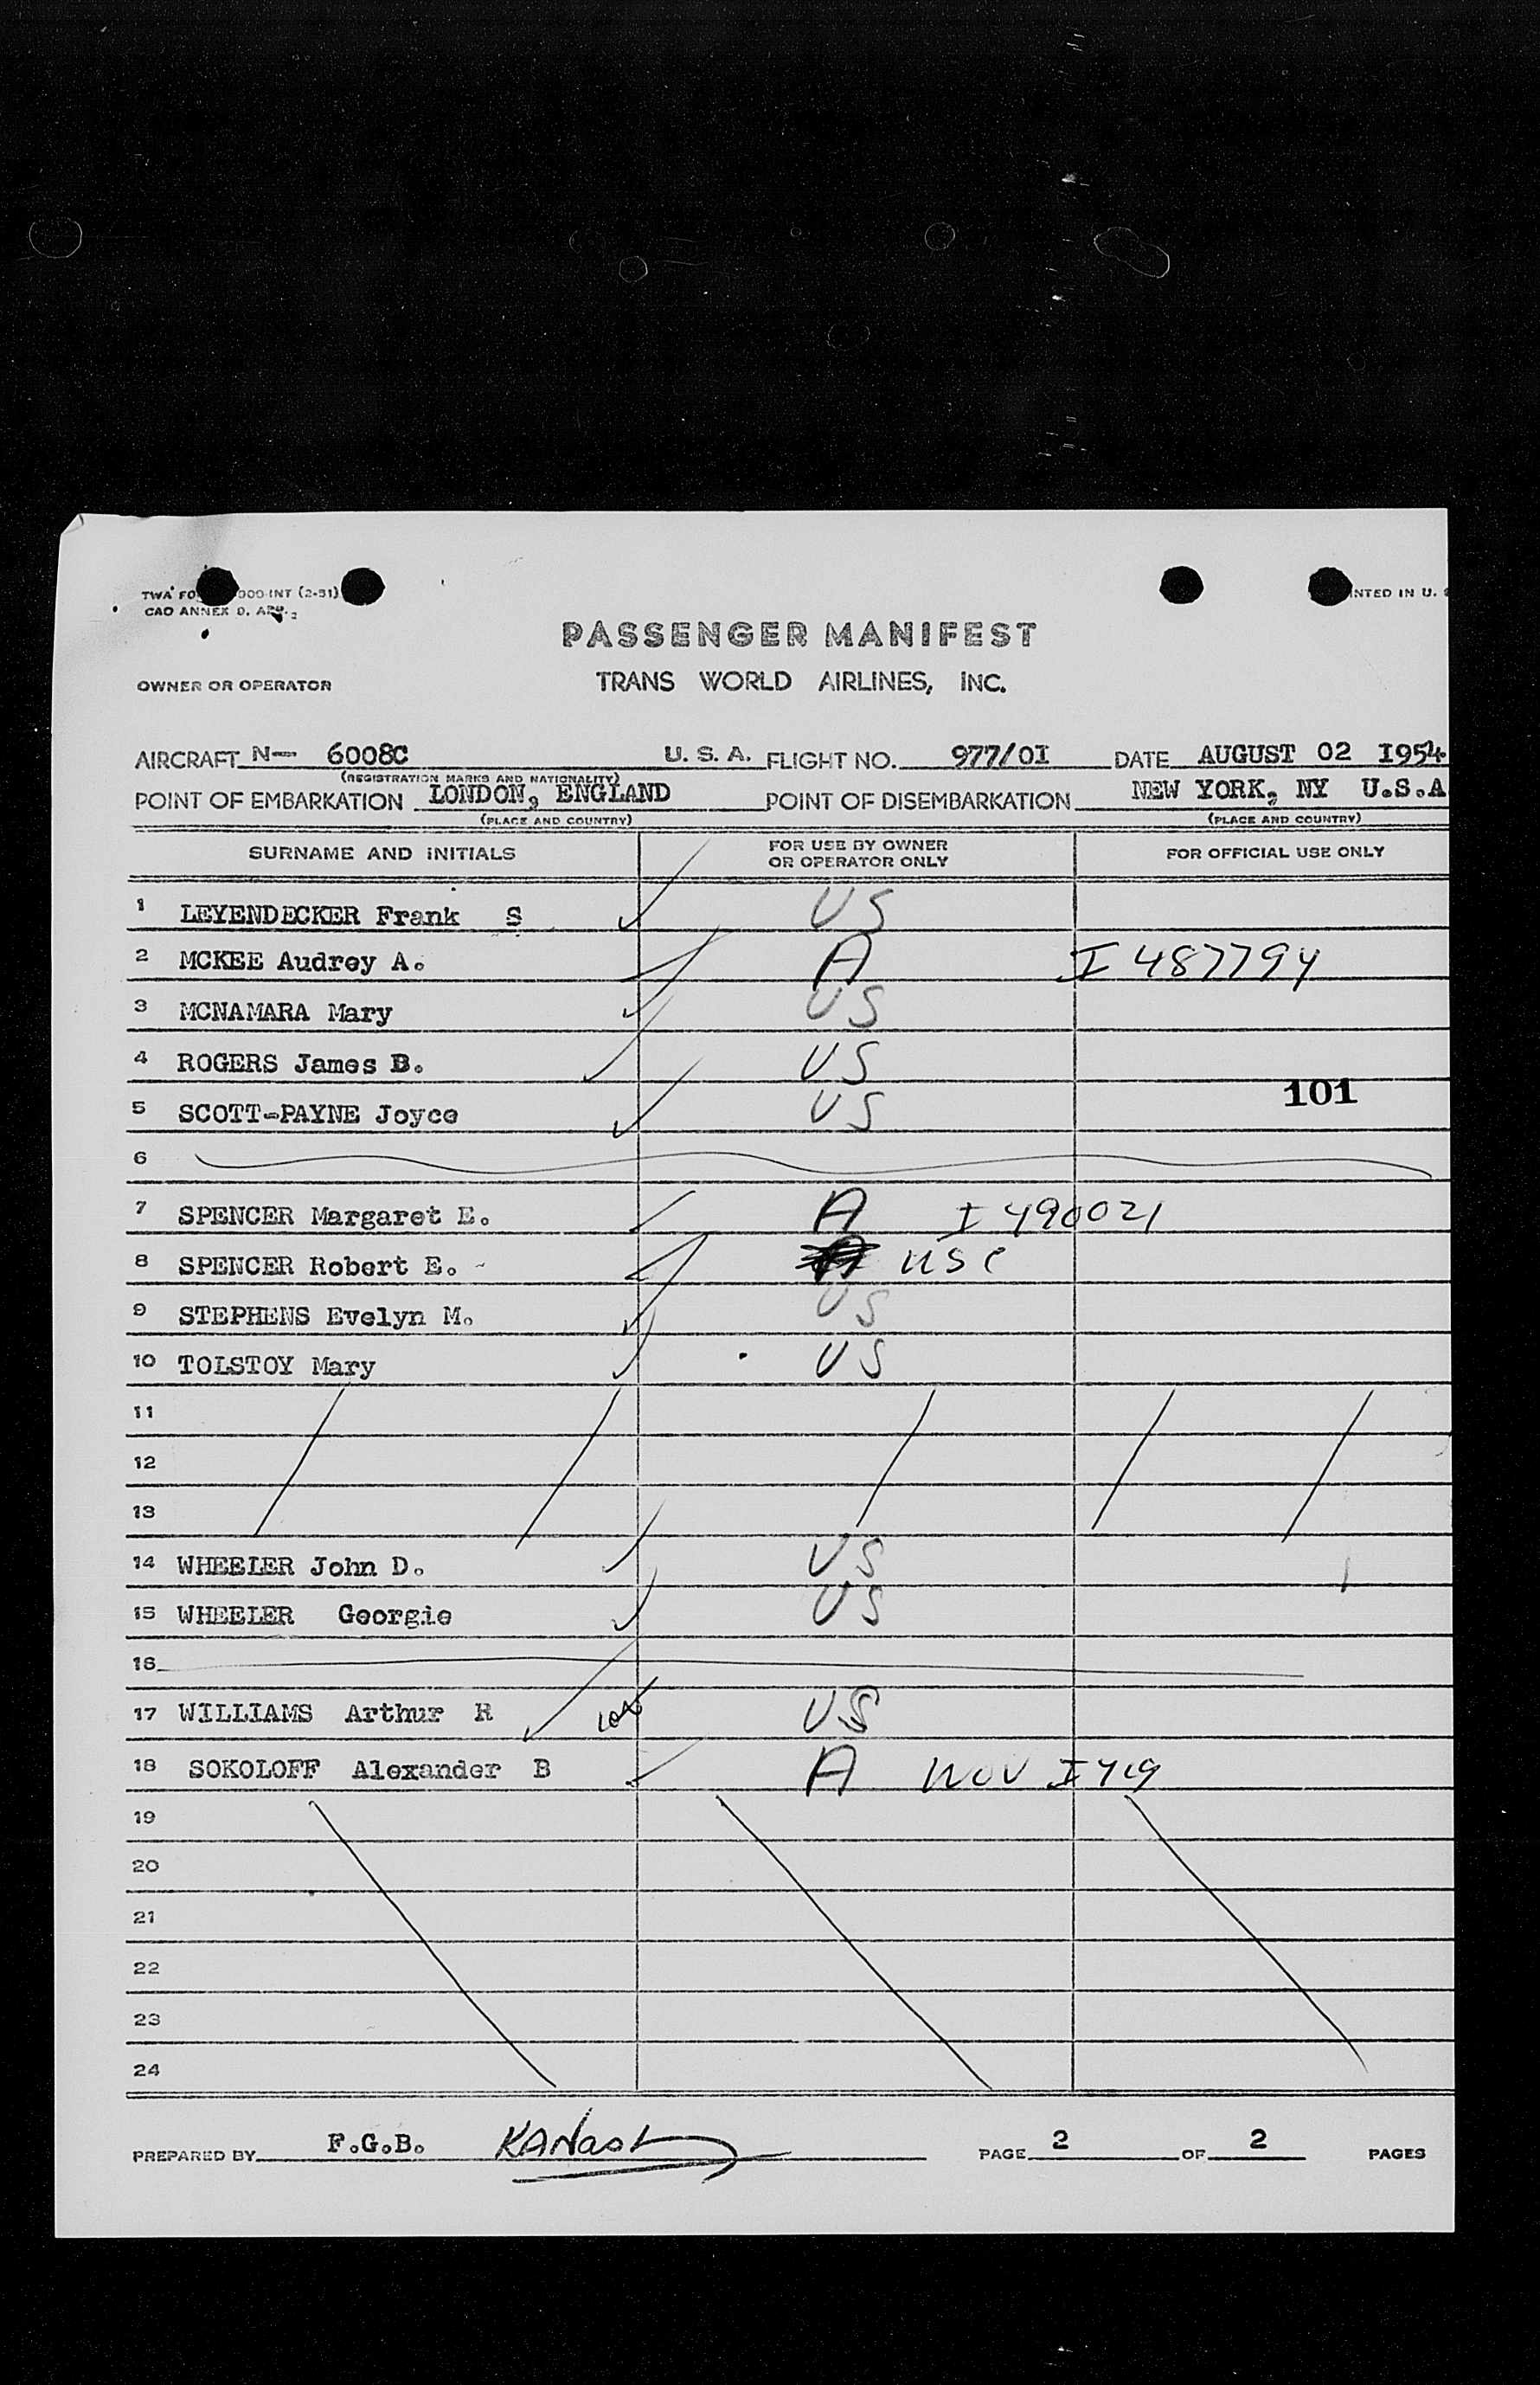 TWA FO 000-INT (2-51)
CAO ANNEX 9, APP. 2
NTED IN U. S
PASSENGER MANIFEST
OWNER OR OPERATOR TRANS WORLD AIRLINES, INC.
AIRCRAFT N— 6008C U. S. A. FLIGHT NO. 977/01 DATE AUGUST 02 1954
(REGISTRATION MARKS AND NATIONALITY)
POINT OF EMBARKATION LONDON, ENGLAND POINT OF DISEMBARKATION NEW YORK, NY U.S.A
(PLACE AND COUNTRY) (PLACE AND COUNTRY)
SURNAME AND INITIALS FOR USE BY OWNER OR OPERATOR ONLY FOR OFFICIAL USE ONLY
1 LEYENDECKER Frank S US
2 MCKEE Audrey A. A I 487794
3 MCNAMARA Mary US
4 ROGERS James B. US
101
5 SCOTT-PAYNE Joyce US
6
7 SPENCER Margaret E. A I 490021
8 SPENCER Robert E. A USC
9 STEPHENS Evelyn M. US
10 TOLSTOY Mary US
11
12
13
14 WHEELER John D. US
15 WHEELER Georgie US
16
17 WILLIAMS Arthur R US
18 SOKOLOFF Alexander B A
19
20
21
22
23
24
PREPARED BY F.G.B. PAGE 2 OF 2 PAGES